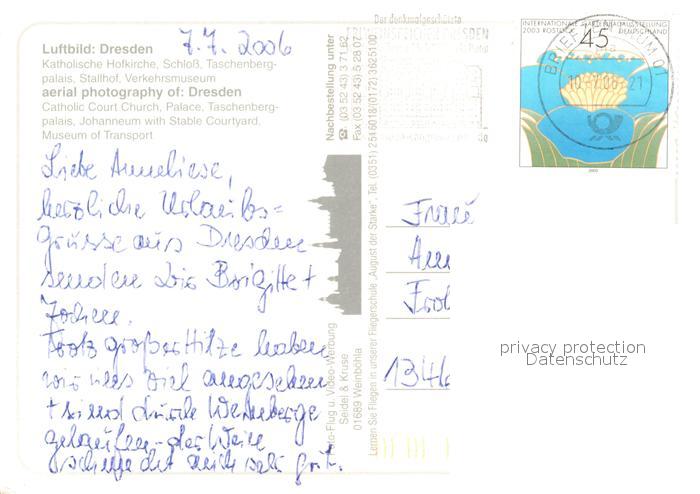 Luftbild: Dresden
Katholische Hofkirche, Schloß, Taschenberg-
palais, Stallhof, Verkehrsmuseum
aerial photography of: Dresden
Catholic Court Church, Palace, Taschenberg-
palais, Johanneum with Stable Courtyard,
Museum of Transport
7.7.2006
Liebe Anneliese,
herzliche Urlaubs=
grüsse aus Dresden
senden Dir Brigitte +
Jochen.
Trotz großer Hitze haben
wir uns viel angesehen
+ sind durch Weinberge
gelaufen - der Wein
schmeckt auch sehr gut.
Nachbestellung unter
☎ (03 52 43) 3 71 62
Fax (03 52 43) 5 28 07
Foto-Flug u. Video-Werbung
Seidel & Kruse
01689 Weinböhla
Lernen Sie Fliegen in unserer Fliegerschule „August der Starke", Tel. (0351) 2546018/(0172) 3625100
Der denkmalgeschützte
DRESDEN
INTERNATIONALE GARTENBAUAUSSTELLUNG
2003 ROSTOCK
DEUTSCHLAND
45
2003
BRIEFZENTRUM 01
21
Frau
Ann
Froh
1346
privacy protection
Datenschutz